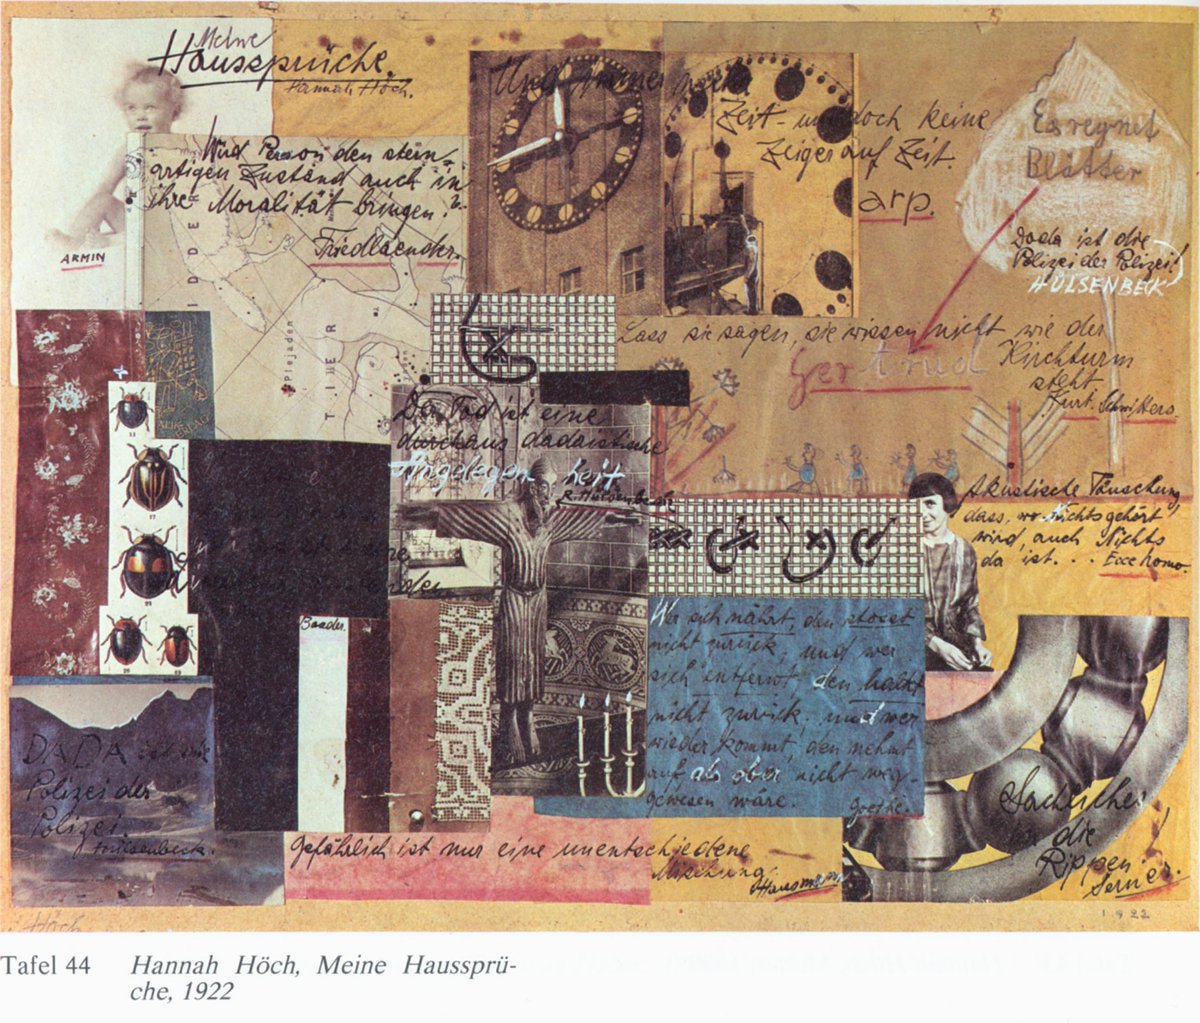 Meine
Haussprüche.
Hannah Höch.
ARMIN
Wird Person den stein-
artigen Zustand auch in
ihre Moralität bringen?
Friedlaender.
IDDER
TIER
Plejaden
Und immer
Zeit und doch keine
Zeiger auf Zeit.
arp.
Es regnet
Blätter
Dada ist die
Polizei der Polizei!
HÜLSENBECK
Lass sie sagen, sie wissen nicht wie der
Kirchturm
steht.
Kurt Schwitters.
Gertrud
Der Tod ist eine
durchaus dadaistische
Angelegenheit
R. Huelsenbeck
13
17
Akustische Täuschung
dass, wo Nichts gehört
wird, auch Nichts
da ist. . . Ecce homo.
Baader.
Wer sich nährt, den stosst
nicht zurück, und wer
sich entfernt, den haltet
nicht zurück, und wer
wieder kommt, den nehmt
auf als ob er nicht weg-
gewesen wäre.
Goethe.
DADA ist die
Polizei der
Polizei.
Huelsenbeck.
Gefährlich ist nur eine unentschiedene
Mischung.
Hausmann
die
Rippen!
Serner.
1922
Höch
Tafel 44 Hannah Höch, Meine Haussprü-
che, 1922